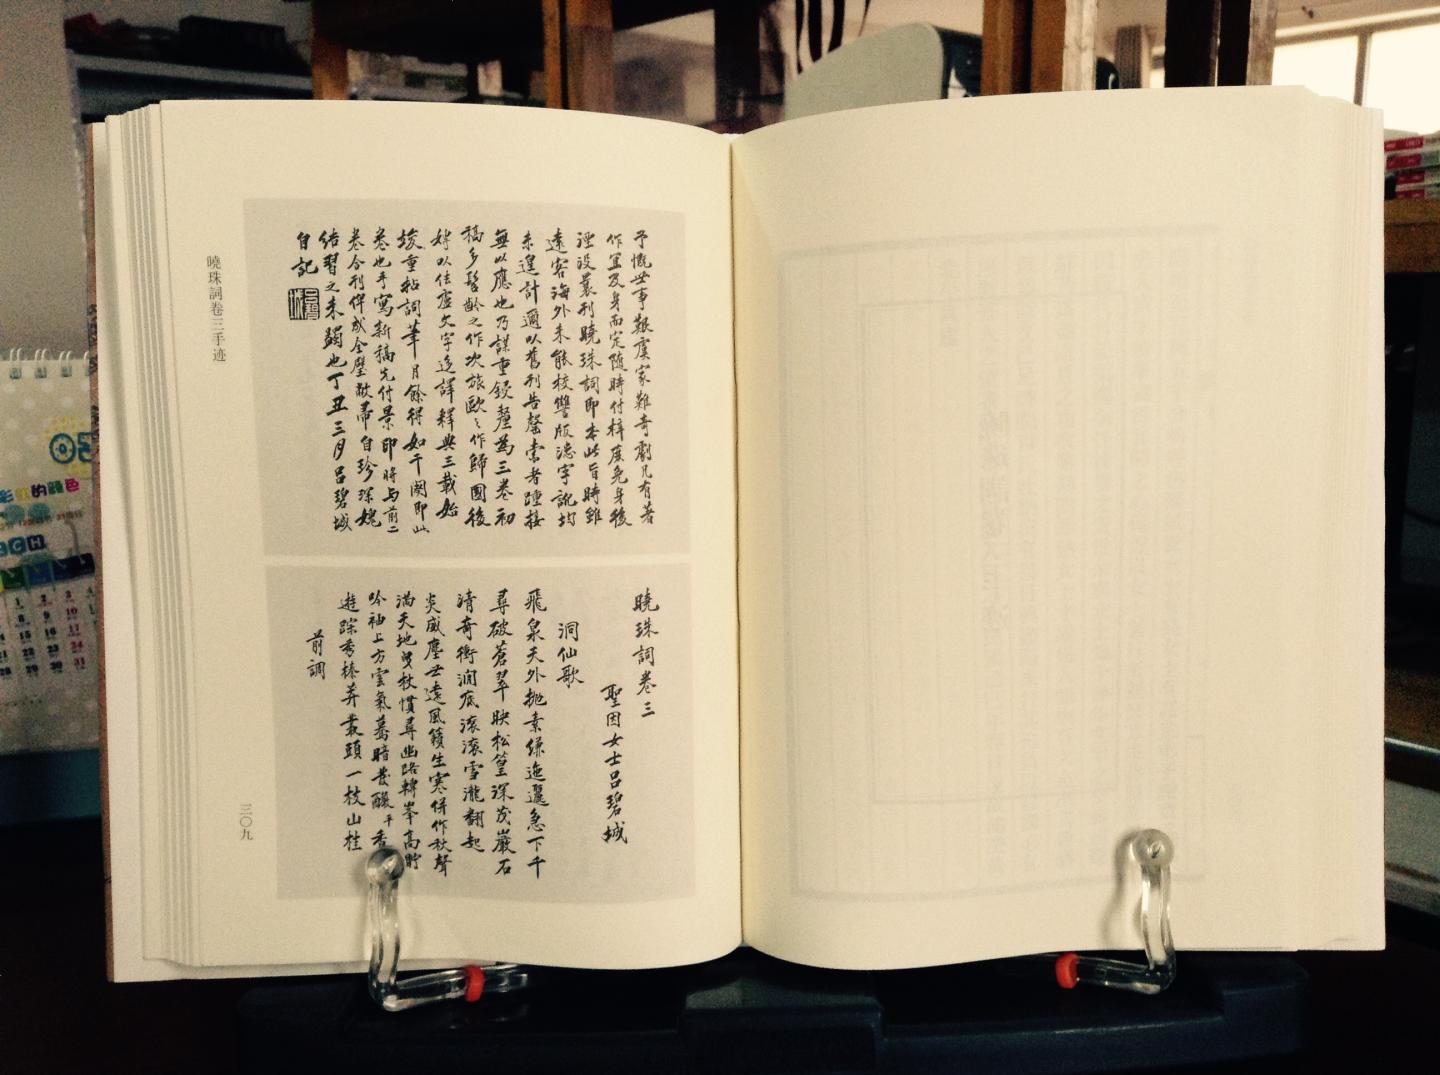 予慨世事艱虞家難奇劇凡有著
作宜及身而定隨時付梓庶免身後
湮没曩刊曉珠詞即本此旨時雖
遠客海外未能校讐版漶字訛均
未遑計邇以舊刊告罄索者踵接
無以應也乃謀重鋟釐為三卷初
稿多髫齡之作次旅歐之作歸國後
專以佉盧文字迻譯釋典三載始
竣重拈詞筆月餘得如干闋即此
卷也手寫新稿先付景印時与前二
卷合刊俾成全璧敝帚自珍深媿
结習之未蠲也丁丑三月呂碧城
自記
曉珠詞卷三手迹
三〇九
曉珠詞卷三
聖因女士呂碧城
洞仙歌
飛泉天外拋素綠迤邐急下千
尋破蒼翠映松篁深茂巖石
清奇衝澗底滚滚雪瀧翻起
炎威塵世遠風籟生寒併作秋聲
滿天地曳杖慣尋幽路轉峯高貯
吟袖上方雲氣驀暗發醲平香
遊踪秀榛莽叢頭一枝山桂
前調
05
彩虹的顏色